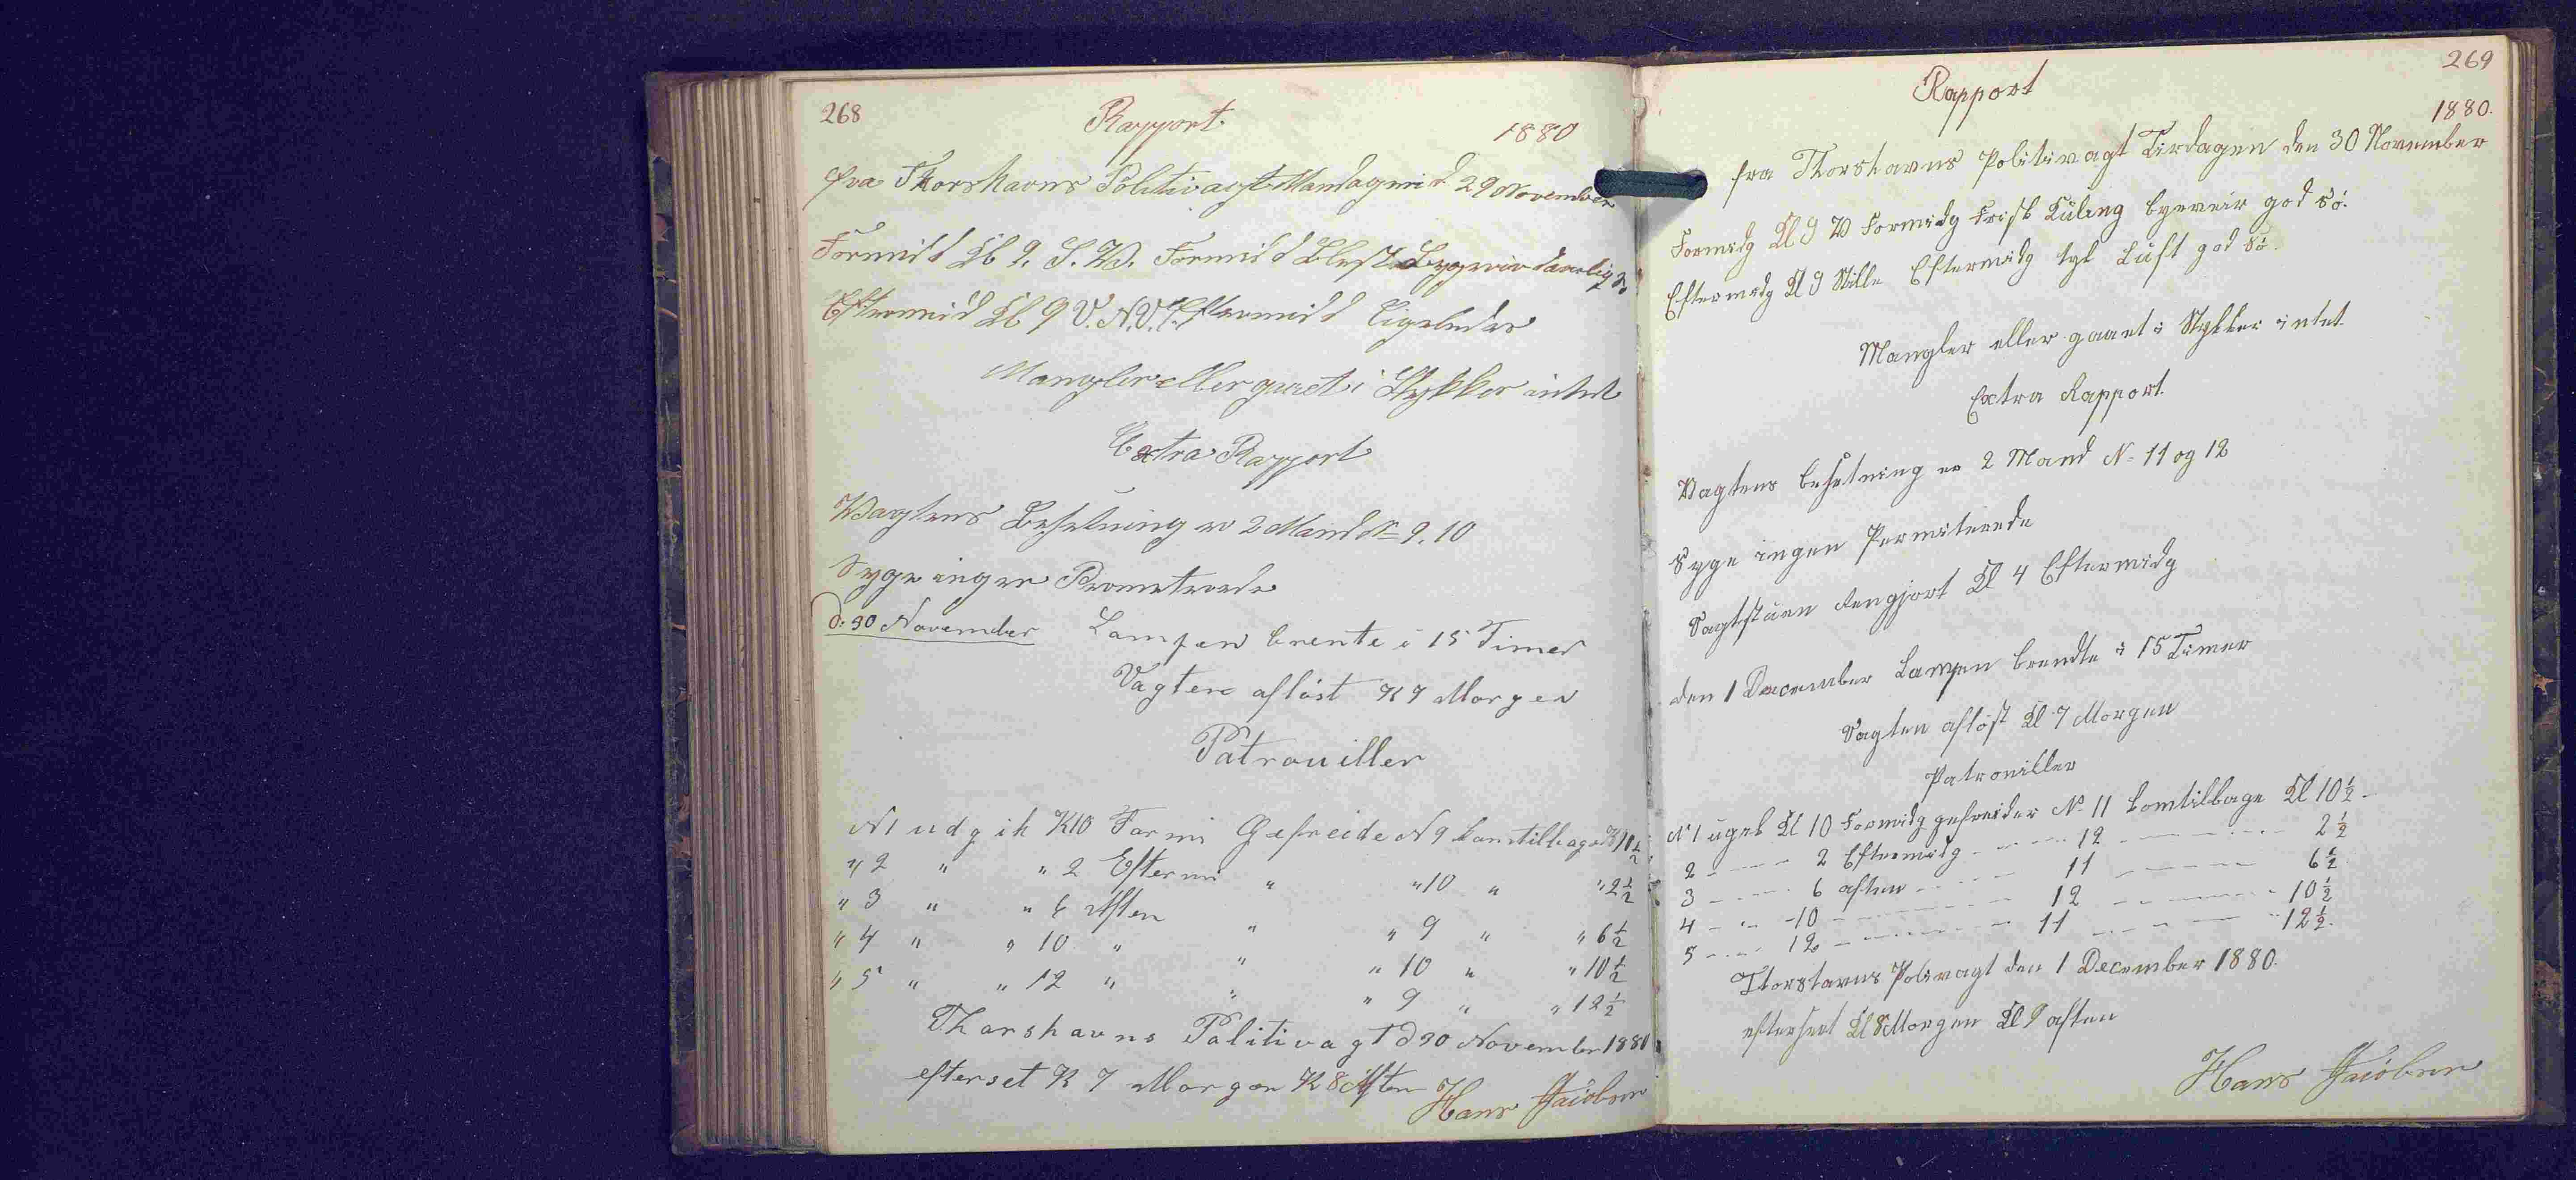 268
Rapport
1880
fra Thorshavns Politivagt Mandagmid 29 November
Formidd Kl 9. S.W. Formidd Blest Bygeveir daarlig Sø
Eftermidd Kl 9 V.N.V. Eftermidd Ligeledes
Mangler eller gaaet i Stykker intet
Extra Rapport
Wagtens Besetning er 2 Mand N= 9. 10
Syge ingen Permeterede
d: 30 November Lampen brente i 15 Timer
Vagten afløst Kl 7 Morgen
Patrouiller
N 1 udgik Kl 10 Formi Gefreide N 9 komtilbage Kl 10 1/2
" 2 " " 2 Eftermi " " 10 " " 2 1/2
" 3 " " 6 Aften " " 9 " " 6 1/2
" 4 " " 10 " " " 10 " " 10 1/2
" 5 " " 12 " " " 9 " " 12 1/2
Thorshavns Politivagt d 30 November 1880
efterset Kl 7 Morgen Kl 8 Aften Hans Jacobsen
269
Rapport
1880.
fra Thorshavns Politivagt Tirdagen den 30 November
Formidg Kl 9 V Formidg Frisk Kuling byeveir god Sø.
Eftermidg Kl 9 Stille Eftermidg tyk Luft god Sø.
Mangler eller gaaet i Stykker intet.
Extra Rapport.
Vagtens besetning er 2 Mand N= 11 og 12
Syge ingen Permiterede
Vagtstuen Rengjort Kl 4 Eftermidg
den 1 December Lampen brendte i 15 Timer
Vagten afløst Kl 7 Morgen
Patroniller
N 1 ugik Kl 10 Formidg gefreider N= 11 komtilbage Kl 10 1/2
2 - - - 2 Eftermidg - - - 12 - - - 2 1/2
3 - - - 6 aften - - - 11 - - - 6 1/2
4 - - - 10 - - - 12 - - - 10 1/2
5 - - - 12 - - - 11 - - - 12 1/2.
Thorshavns Polivagt den 1 December 1880.
efterseet Kl 8 Morgen Kl 9 aften
Hans Jacobsen